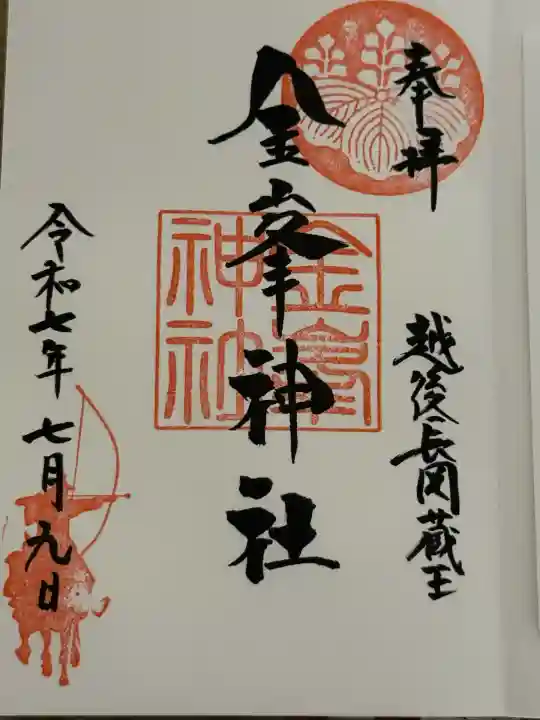 奉拝
越後長岡蔵王
金峯神社
金峯神社
令和七年七月九日